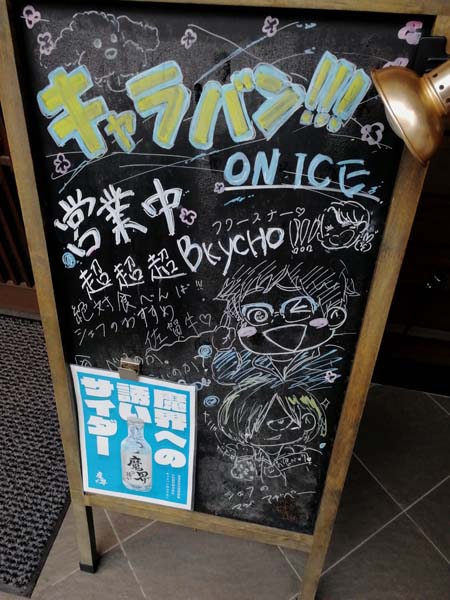 キャラバン!!!
ON ICE
営業中
フリースナー♡
BKYCHO
超超超
絶対食べんば
シェフのおすすめ
佐賀牛♡
魔界への
誘い
サイダー
魔界
シェフの